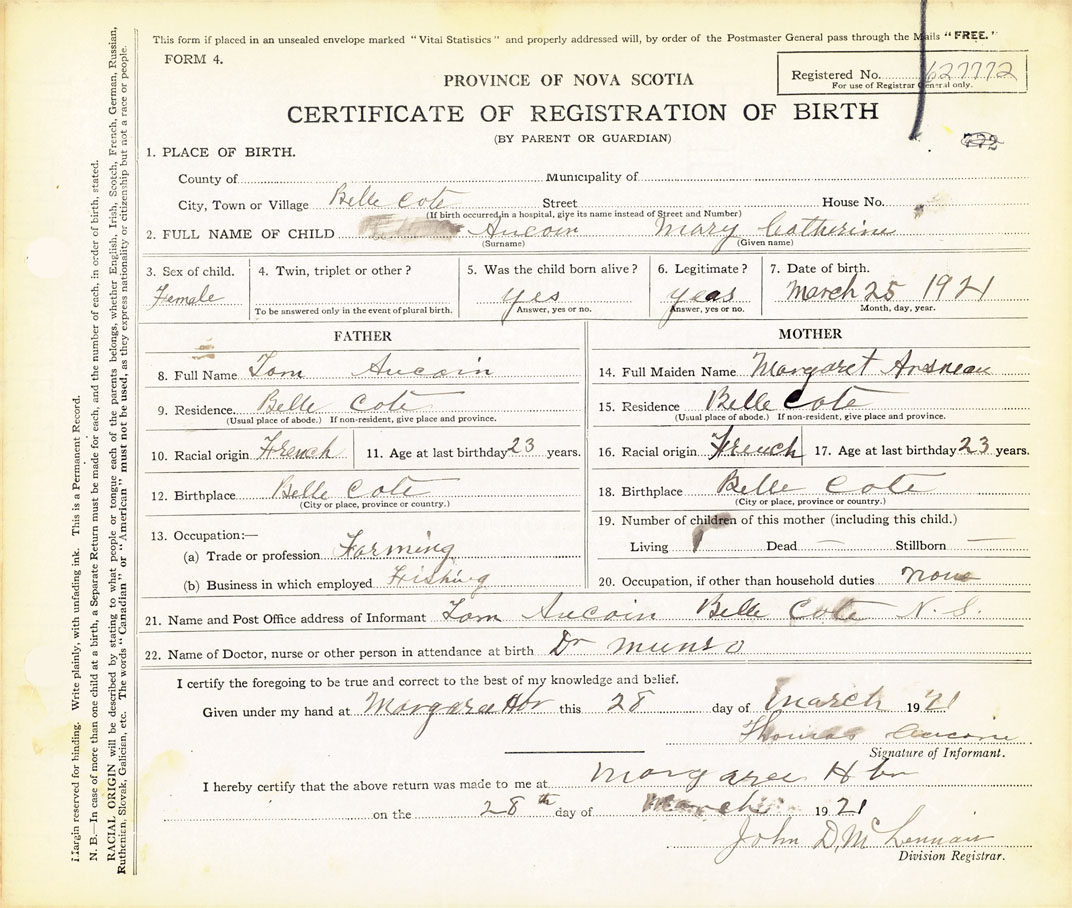 This form if placed in an unsealed envelope marked "Vital Statistics" and properly addressed will, by order of the Postmaster General pass through the Mails "FREE."
FORM 4.
PROVINCE OF NOVA SCOTIA
Registered No. 627772
For use of Registrar General only.
CERTIFICATE OF REGISTRATION OF BIRTH
(BY PARENT OR GUARDIAN)
772
1. PLACE OF BIRTH.
County of Municipality of
City, Town or Village Belle Cote Street House No.
(If birth occurred in a hospital, give its name instead of Street and Number)
2. FULL NAME OF CHILD Aucoin Mary Catherine
(Surname) (Given name)
3. Sex of child. Female
4. Twin, triplet or other?
To be answered only in the event of plural birth.
5. Was the child born alive? yes
Answer, yes or no.
6. Legitimate? yeas
Answer, yes or no.
7. Date of birth. March 25 1921
Month, day, year.
FATHER
8. Full Name Tom Aucoin
9. Residence. Belle Cote
(Usual place of abode.) If non-resident, give place and province.
10. Racial origin French 11. Age at last birthday 23 years.
12. Birthplace Belle Cote
(City or place, province or country.)
13. Occupation:—
(a) Trade or profession Farming
(b) Business in which employed Fishing
MOTHER
14. Full Maiden Name Margaret
15. Residence Belle Cote
(Usual place of abode.) If non-resident, give place and province.
16. Racial origin French 17. Age at last birthday 23 years.
18. Birthplace Belle Cote
(City or place, province or country.)
19. Number of children of this mother (including this child.)
Living 1 Dead — Stillborn —
20. Occupation, if other than household duties none
21. Name and Post Office address of Informant Tom Aucoin Belle Cote N. S.
22. Name of Doctor, nurse or other person in attendance at birth Dr Munro
I certify the foregoing to be true and correct to the best of my knowledge and belief.
Given under my hand at Margaree Hbr this 28 day of March 1921
Thomas Aucoin
Signature of Informant.
I hereby certify that the above return was made to me at Margaree Hbr
on the 28th day of March 1921
John D. McLennan
Division Registrar.
Margin reserved for binding. Write plainly, with unfading ink. This is a Permanent Record.
N. B.—In case of more than one child at a birth, a Separate Return must be made for each, and the number of each, in order of birth, stated.
RACIAL ORIGIN will be described by stating to what people or tongue each of the parents belongs, whether English, Irish, Scotch, French, German, Russian,
Ruthenian, Slovak, Galician, etc. The words "Canadian" or "American" must not be used, as they express nationality or citizenship but not a race or people.